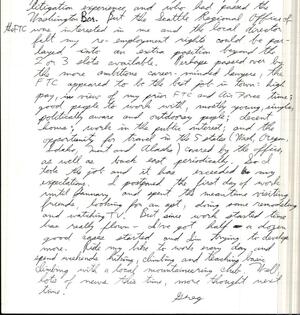 litigation experience and who had passed the
Washington Bar. But the Seattle Regional Office of
the FTC was interested in me and the local director
felt my re-employment rights could be par-
layed into an extra position beyond the
2 or 3 slots available. Perhaps passed over by
the more ambitious career-minded lawyers, the
FTC appeared to be the best job in town: high
pay, in view of my prior FTC and Air Force time;
good people to work with, mostly young, single,
politically aware and outdoorsy people; decent
hours; work in the public interest; and the
opportunity for travel in the 5 states (Wash, Oregon,
Idaho, Mont and Alaska) covered by the office
as well as back east periodically. So I
took the job and it has exceeded my
expectations. I postponed the first day of work
until and spent the meantime visiting
friends, looking for an apt, doing some remodeling
and watching TV. But since work started time
has really flown - I've got half - a dozen
good cases started and I'm trying to develop
more. Ride my bike to work every day and
spend weekends hiking, climbing and teaching basic
climbing with a local mountaineering club. Well,
lots of news this time, more thought next
time.
Greg